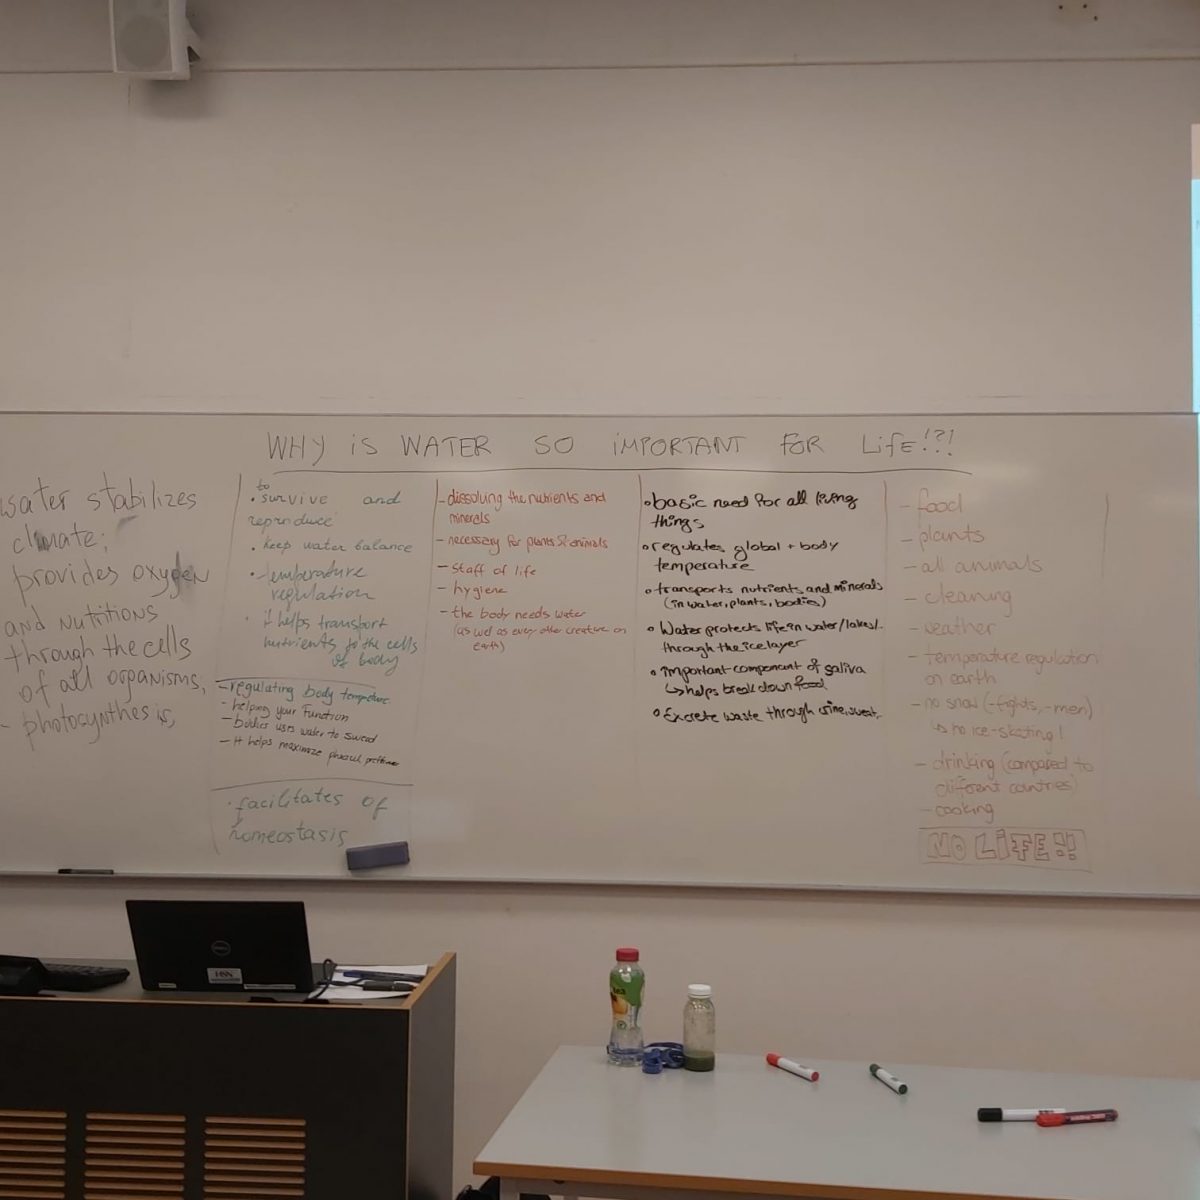 WHY iS WATER SO iMPORTANT FOR LiFE!?!
water stabilizes
climate;
provides oxygen
and nutritions
through the cells
of all organisms,
- photosynthesis,
to
• survive and
reproduce
• keep water balance
• temperature
regulation
• it helps transport
nutrients to the cells
of body
- regulating body temperature
- helping your Function
- bodies uses water to swead
- it helps maximize
• facilitates of
homeostasis
- dissolving the nutrients and
minerals
- necessary for plants & animals
- staff of life
- hygiene
- the body needs water
(as well as every other creature on
Earth)
• basic need for all living
things
• regulates global + body
temperature
• transports nutrients and minerals
(in water, plants, bodies)
• Water protects life in water/lakes/..
through the ice layer
• important component of saliva
↳ helps break down food
• Excrete waste through urine, sweat..
- food
- plants
- all animals
- cleaning
- weather
- temperature regulation
on earth
- no snow (-fights, -men)
↳ no ice-skating!
- drinking (compared to
different countries)
- cooking
NO LiFE!!
DELL
HSN